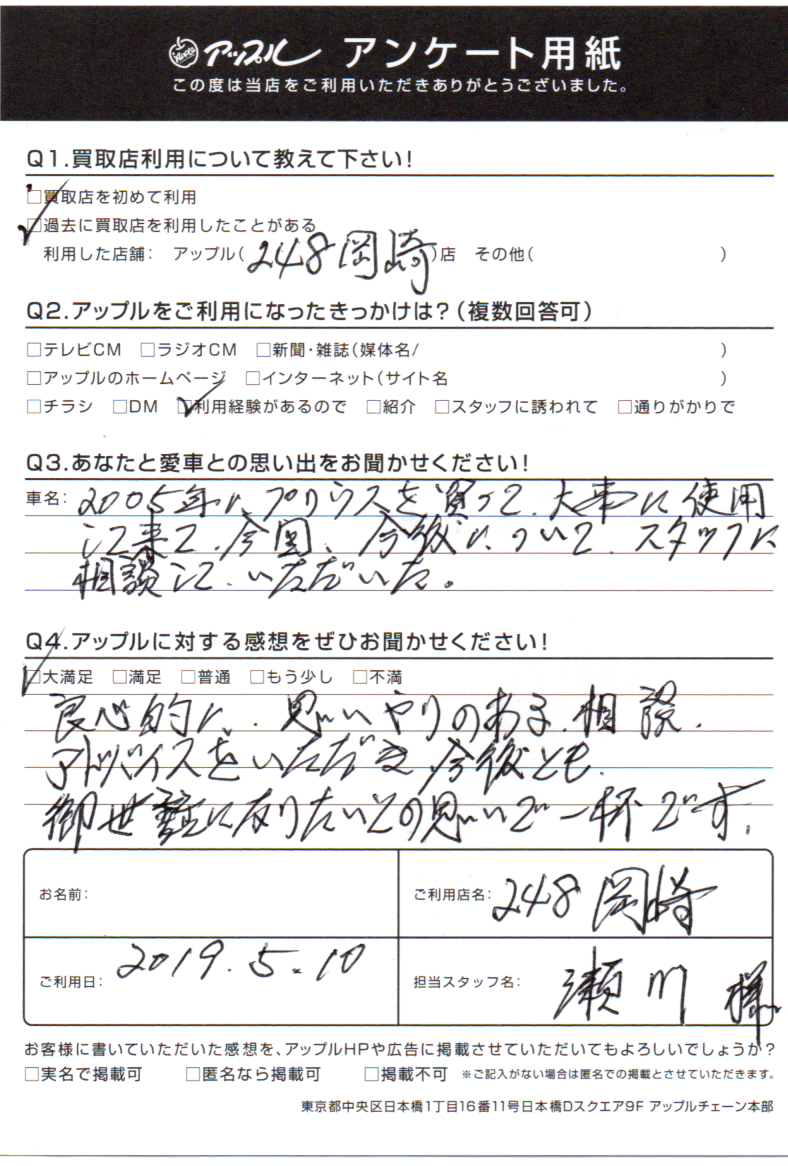 アップル アンケート用紙
この度は当店をご利用いただきありがとうございました。
Q1.買取店利用について教えて下さい!
□買取店を初めて利用
☑過去に買取店を利用したことがある
利用した店舗: アップル(248岡崎)店 その他( )
Q2.アップルをご利用になったきっかけは?(複数回答可)
□テレビCM □ラジオCM □新聞・雑誌(媒体名/ )
□アップルのホームページ □インターネット(サイト名 )
□チラシ □DM ☑利用経験があるので □紹介 □スタッフに誘われて □通りがかりで
Q3.あなたと愛車との思い出をお聞かせください!
車名: 2005年に、プリウスを買って、大事に使用
して来て、今回、今後について、スタッフに
相談して、いただいた。
Q4.アップルに対する感想をぜひお聞かせください!
☑大満足 □満足 □普通 □もう少し □不満
良心的に、思いやりのある、相談、
アドバイスをいただき、今後とも、
御世話になりたいとの思いで一杯です。
お名前:
ご利用店名: 248岡崎
ご利用日: 2019.5.10
担当スタッフ名: 瀬川様
お客様に書いていただいた感想を、アップルHPや広告に掲載させていただいてもよろしいでしょうか?
□実名で掲載可 □匿名なら掲載可 □掲載不可 ※ご記入がない場合は匿名での掲載とさせていただきます。
東京都中央区日本橋1丁目16番11号日本橋Dスクエア9F アップルチェーン本部